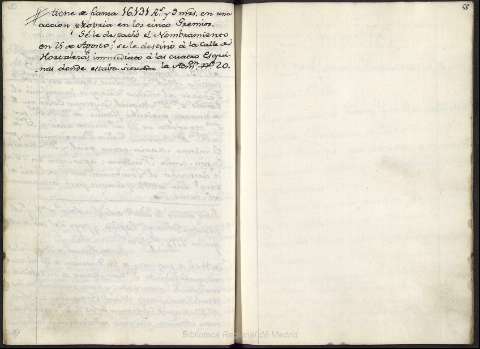 tiene de fianza 16.131 R.s y 3 mrs, en una
accion propria en los cinco Gremios.
Se le despachó el Nombramiento
en 28 de Agosto; se le destinó á la Calle de
Hortaleza, immediato á las cuatro Esqui-
nas donde estaba la 20.
55
Biblioteca Regional de Madrid